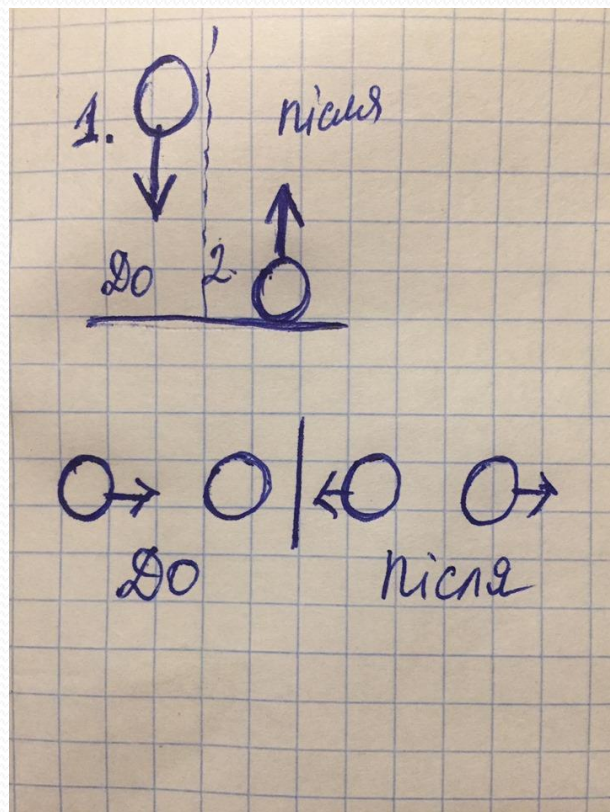 1.
після
До 2.
До
Після